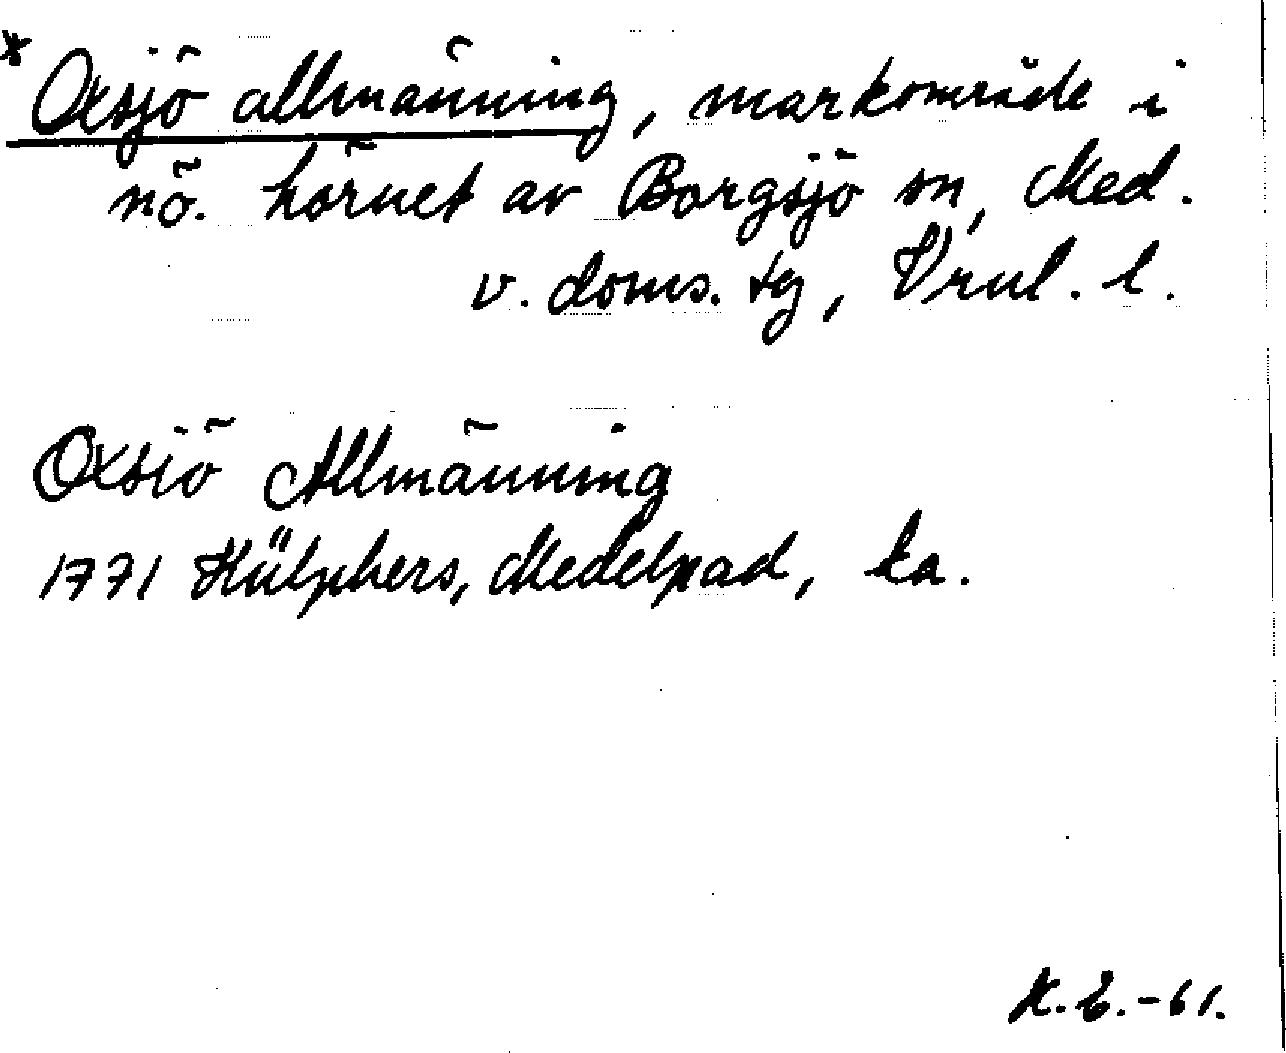 * Oxsjö allmänning, markområde i
nö. hörnet av Borgsjö sn, Med.
v. doms. tg, Vrnl. l.
Oxsiö Allmänning
1771 Hülphers, Medelpad, ka.
K.E.-61.